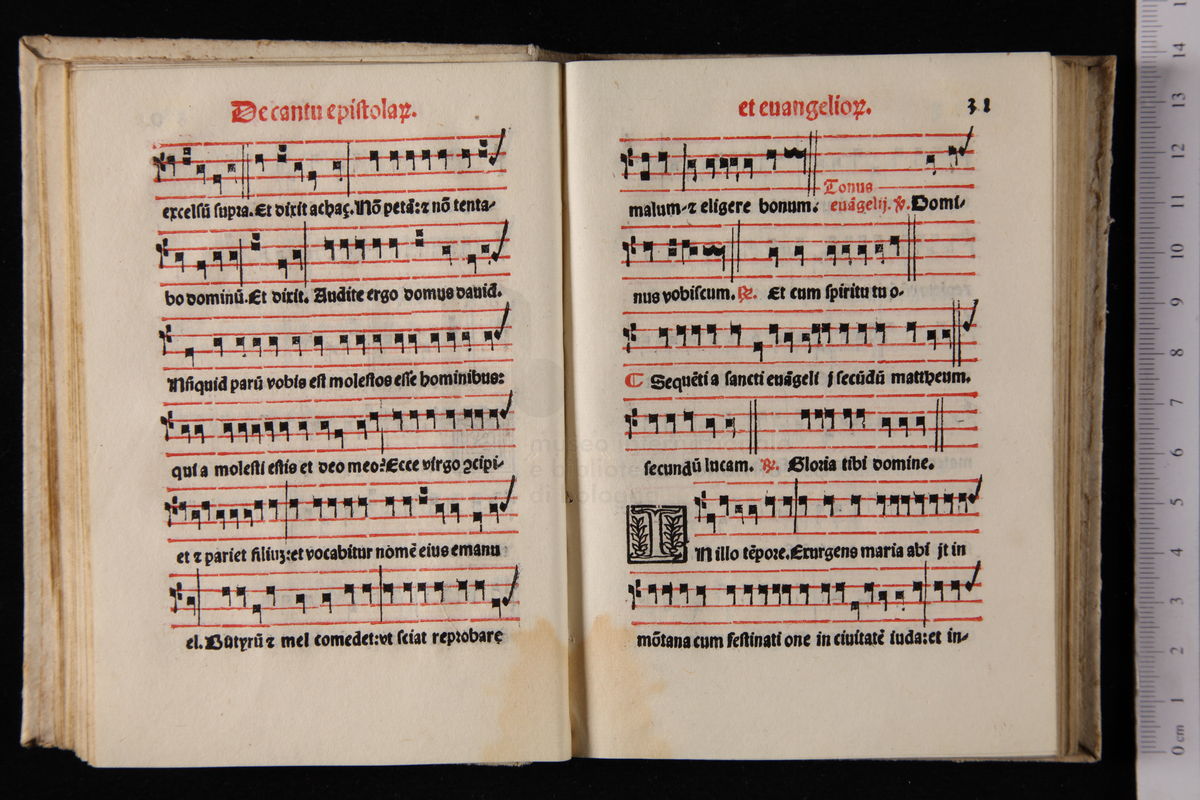 De cantu epistolaꝝ.
excelsū supra. Et dixit achaz. Nō petā: ⁊ nō tenta-
bo dominū. Et dixit. Audite ergo domus dauid.
Nūquid parū vobis est molestos esse hominibus:
qui a molesti estis et deo meo? Ecce virgo ꝯcipi-
et ⁊ pariet filiuʒ: et vocabitur nomē eius emanu
el. Butyrū ⁊ mel comedet: vt sciat reprobare
et euangelioꝝ.
31
malum- ⁊ eligere bonum.
Tonus
euāgelij. ℣. Domi-
nus vobiscum. ℟. Et cum spiritu tu o.
⸿ Sequēti a sancti euāgeli j secūdū mattheum.
secundū lucam. ℟. Gloria tibi domine.
IN illo tēpore. Exurgens maria abi jt in
mōtana cum festinati one in ciuitatē iuda: et in-
museo internazionale
e biblioteca
di bologna
0 cm
1
2
3
4
5
6
7
8
9
10
11
12
13
14